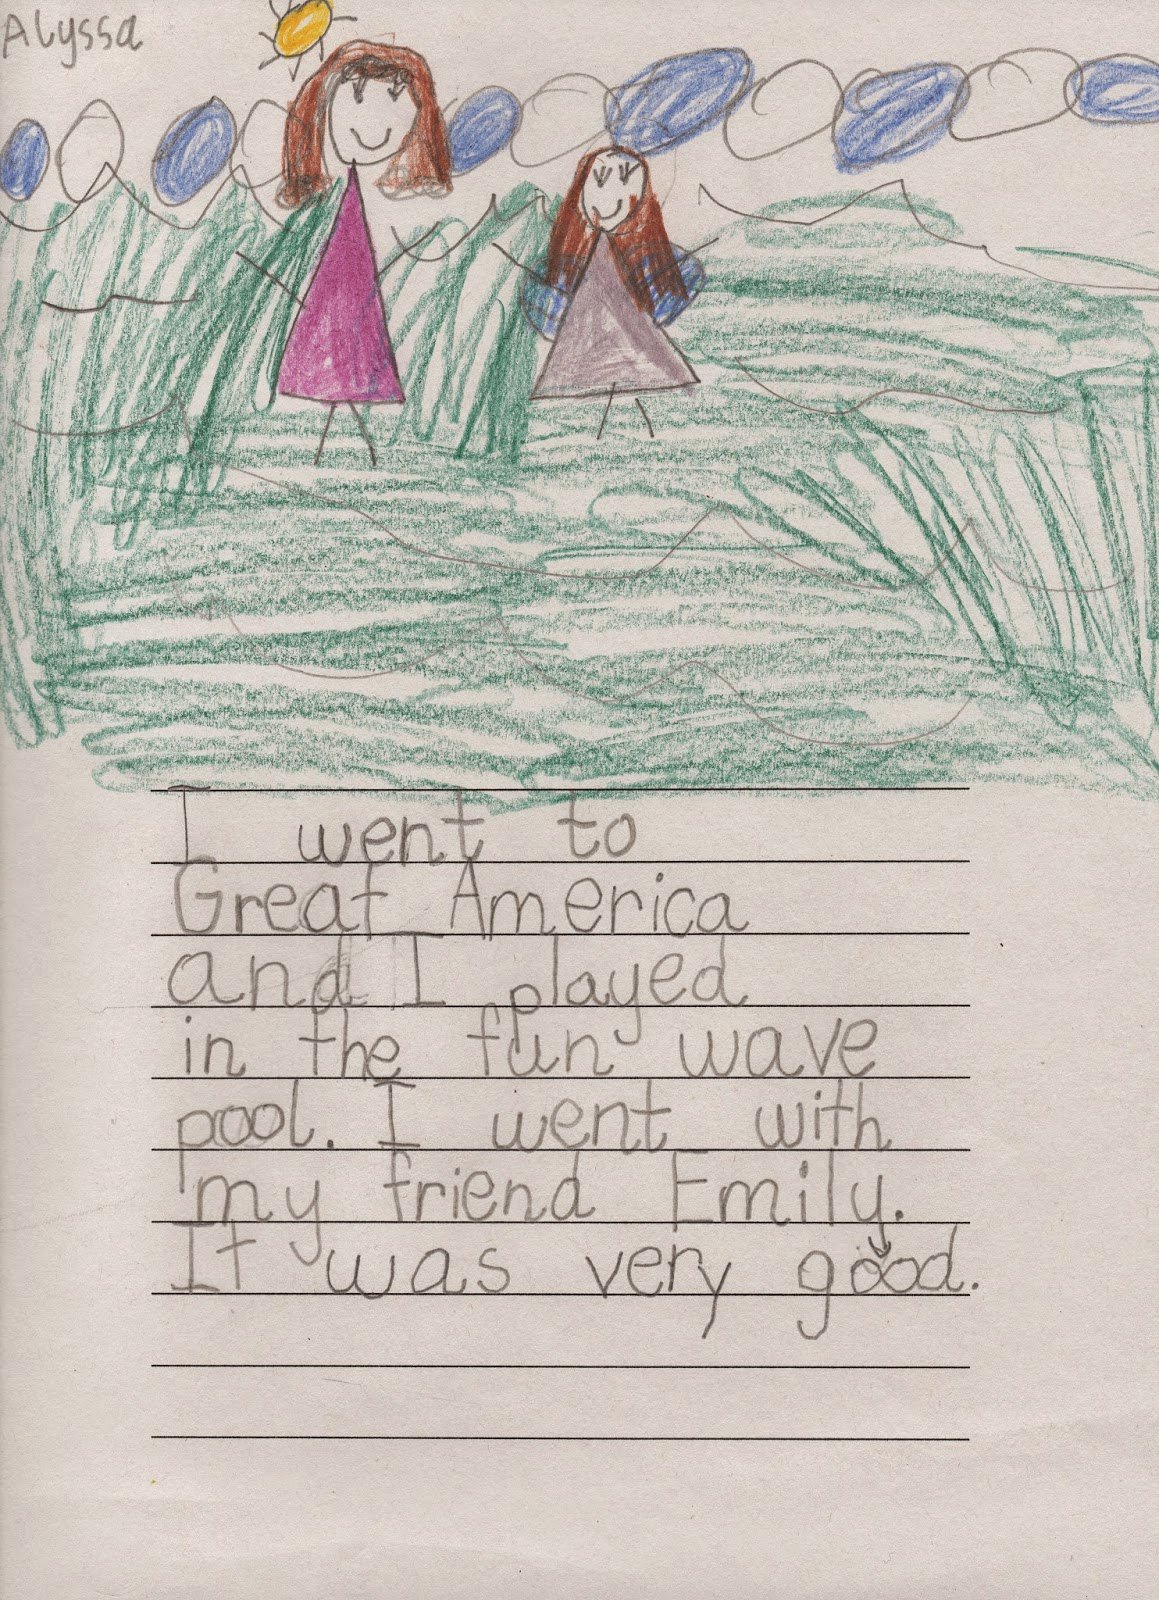 Alyssa
I went to
Great America
and I played
in the fun wave
pool. I went with
my friend Emily.
It was very good.